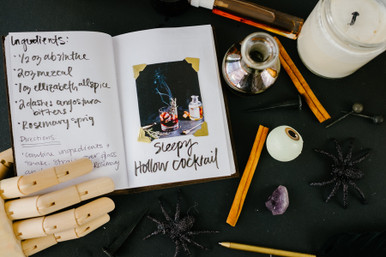 Ingredients:
• 1/2 oz absinthe
• 2 oz mezcal
• 1 oz elizabeth allspice
• 2 dashes angostura
bitters
• Rosemary sprig
Directions:
Combine ingredients +
shake, strain over glass
Rosemary
Sleepy
Hollow cocktail